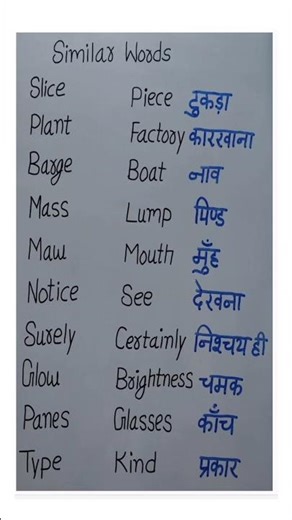 Similar Words
Slice Piece टुकड़ा
Plant Factory कारखाना
Barge Boat नाव
Mass Lump पिण्ड
Maw Mouth मुँह
Notice See देखना
Surely Certainly निश्चय ही
Glow Brightness चमक
Panes Glasses काँच
Type Kind प्रकार